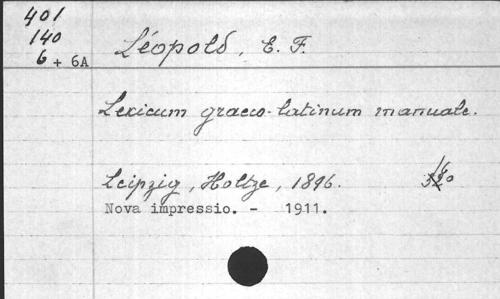 401
140
6 + 6A
Léopold, E. F.
Lexicum graeco-latinum manuale.
Leipzig, Holtze, 1896.
Nova impressio. - 1911.